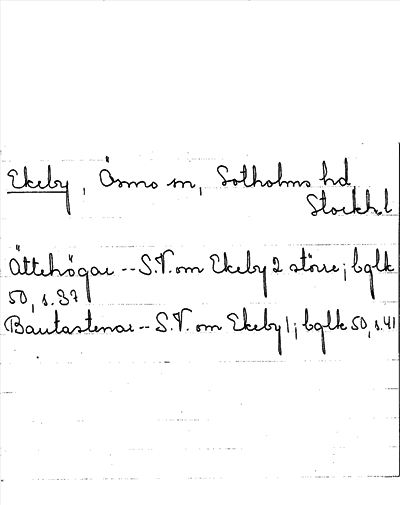 Ekeby, Ösmo sn, Sotholms hd
Stockh.l
Ättehögar -- S.V. om Ekeby 2 större; bglk
50, s. 37
Bautastenar -- S.V. om Ekeby 1; bglk 50, s. 41